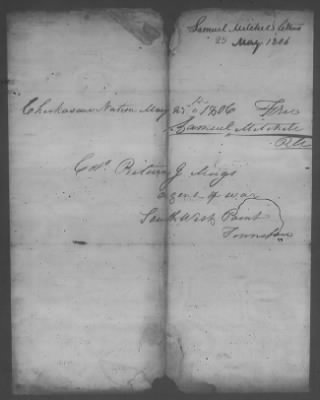 Samuel Mitchel's letter
23 May 1806
Chickasaw Nation May 23d 1806 Free
Samuel Mitchell
Col. Return J Meigs
Agent of war
South West Point
Tennessee